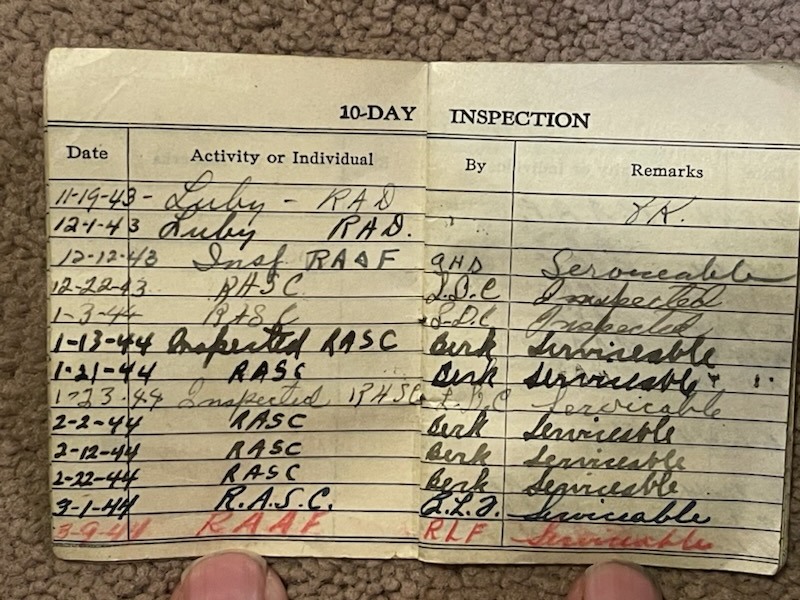 10-DAY INSPECTION
Date Activity or Individual By Remarks
11-19-43 - Luby - RAD OK.
12-1-43 Luby RAD.
12-12-43 Insp RAAF GHD Serviceable
12-22-43 RASC L.D.C Inspected
1-3-44 RASC L.D.C Inspected
1-13-44 Inspected RASC Berk Serviceable
1-21-44 RASC Berk Serviceable
1-23-44 Inspected RASC L.D.C Servicable
2-2-44 RASC Berk Serviceable
2-12-44 RASC Berk Serviceable
2-22-44 RASC Berk Serviceable
3-1-44 R.A.S.C. Serviceable
3-9-44 RAAF RLF Serviceable